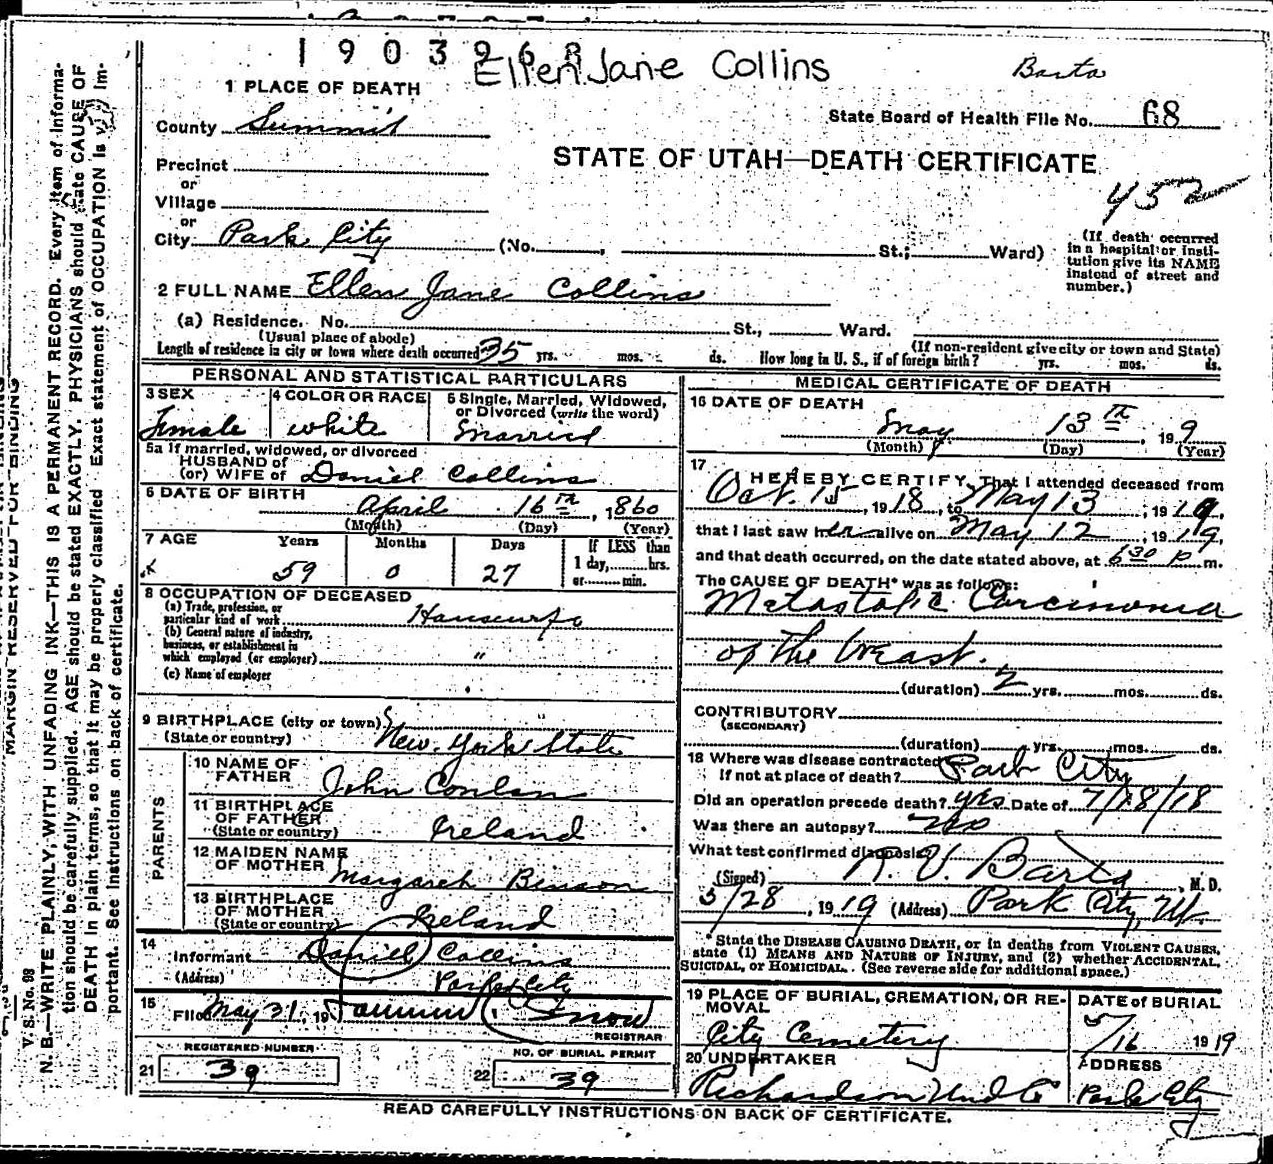 1903268
Ellen Jane Collins
Barta
1 PLACE OF DEATH
State Board of Health File No. 68
County Summit
STATE OF UTAH—DEATH CERTIFICATE
Precinct
or
452
Village
or
City Park City (No. , St.; Ward)
(If death occurred in a hospital or institution give its NAME instead of street and number.)
2 FULL NAME Ellen Jane Collins
(a) Residence. No. St., Ward.
(Usual place of abode) (If non-resident give city or town and State)
Length of residence in city or town where death occurred 35 yrs. mos. ds. How long in U. S., if of foreign birth? yrs. mos. ds.
PERSONAL AND STATISTICAL PARTICULARS
3 SEX
Female
4 COLOR OR RACE
white
5 Single, Married, Widowed, or Divorced (write the word)
Married
5a If married, widowed, or divorced
HUSBAND of
(or) WIFE of Daniel Collins
6 DATE OF BIRTH
April 16th, 1860
(Month) (Day) (Year)
7 AGE Years Months Days If LESS than
1 day, hrs.
or min.
59 0 27
8 OCCUPATION OF DECEASED
(a) Trade, profession, or
particular kind of work Housewife
(b) General nature of industry,
business, or establishment in
which employed (or employer) "
(c) Name of employer
9 BIRTHPLACE (city or town)
(State or country) New York State
PARENTS
10 NAME OF
FATHER John Conlan
11 BIRTHPLACE
OF FATHER
(State or country) Ireland
12 MAIDEN NAME
OF MOTHER Margaret Binson
13 BIRTHPLACE
OF MOTHER
(State or country) Ireland
14
Informant Daniel Collins
(Address) Park City
15
Filed May 31, 19 Snow
REGISTRAR
REGISTERED NUMBER
21 39
NO. OF BURIAL PERMIT
22 39
MEDICAL CERTIFICATE OF DEATH
16 DATE OF DEATH
May 13th, 19 9
(Month) (Day) (Year)
17
I HEREBY CERTIFY, That I attended deceased from
Oct. 15, 1918, to May 13, 1919,
that I last saw her alive on May 12, 1919,
and that death occurred, on the date stated above, at 6 30 p m.
The CAUSE OF DEATH* was as follows:
Metastatic Carcinoma
of the breast.
(duration) 2 yrs. mos. ds.
CONTRIBUTORY
(SECONDARY)
(duration) yrs. mos. ds.
18 Where was disease contracted
If not at place of death? Park City
Did an operation precede death? yes Date of 7/18/18
Was there an autopsy? No
What test confirmed diagnosis?
(Signed) R. V. Barta, M. D.
5/28, 1919 (Address) Park City, Ut
*State the DISEASE CAUSING DEATH, or in deaths from VIOLENT CAUSES,
state (1) MEANS AND NATURE OF INJURY, and (2) whether ACCIDENTAL,
SUICIDAL, or HOMICIDAL. (See reverse side for additional space.)
19 PLACE OF BURIAL, CREMATION, OR REMOVAL
City Cemetery
DATE of BURIAL
5/16 1919
20 UNDERTAKER
Richardson Und Co
ADDRESS
Park City
READ CAREFULLY INSTRUCTIONS ON BACK OF CERTIFICATE.
MARGIN RESERVED FOR BINDING
V. S. No. 98
N. B.—WRITE PLAINLY, WITH UNFADING INK—THIS IS A PERMANENT RECORD. Every item of information should be carefully supplied. AGE should be stated EXACTLY. PHYSICIANS should state CAUSE OF DEATH in plain terms, so that it may be properly classified. Exact statement of OCCUPATION is very important. See instructions on back of certificate.